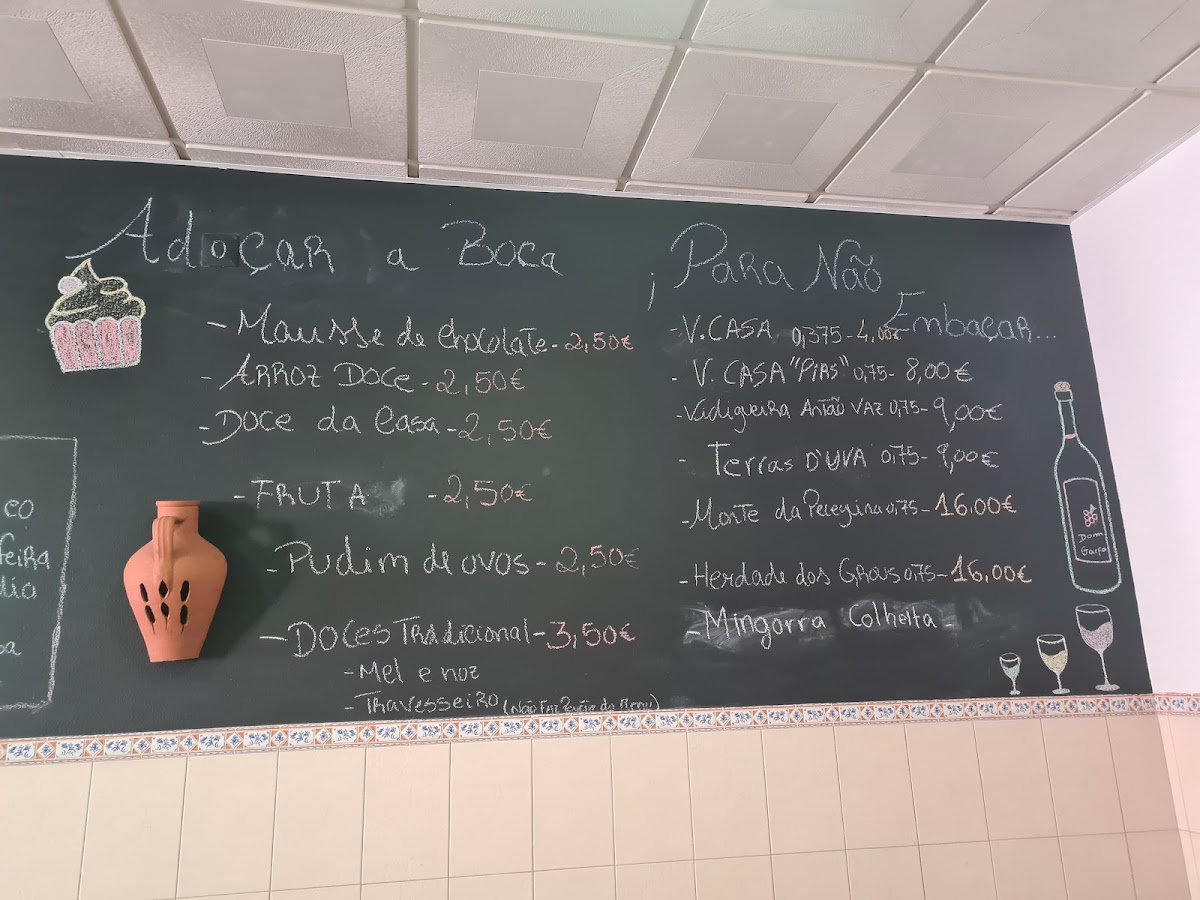 Adoçar a Boca
- Mausse de Chocolate - 2,50€
- ARROZ DOCE - 2,50€
- DOCE da Casa - 2,50€
- FRUTA - 2,50€
- PUDIM de ovos - 2,50€
- DOCES TRADICIONAL - 3,50€
- Mel e noz
- Travesseiro (Não Faz do Menu)
eo
feira
dio
Para Não
Embaçar...
- V. CASA 0,375 - 4,00€
- V. CASA "PIAS" 0,75 - 8,00€
- Vidigueira Antão VAZ 0,75 - 9,00€
- Terras D'UVA 0,75 - 9,00€
- Monte da Peregrina 0,75 - 16,00€
- Herdade dos Grous 0,75 - 16,00€
- Mingorra Colheita -
Dom
Garfo